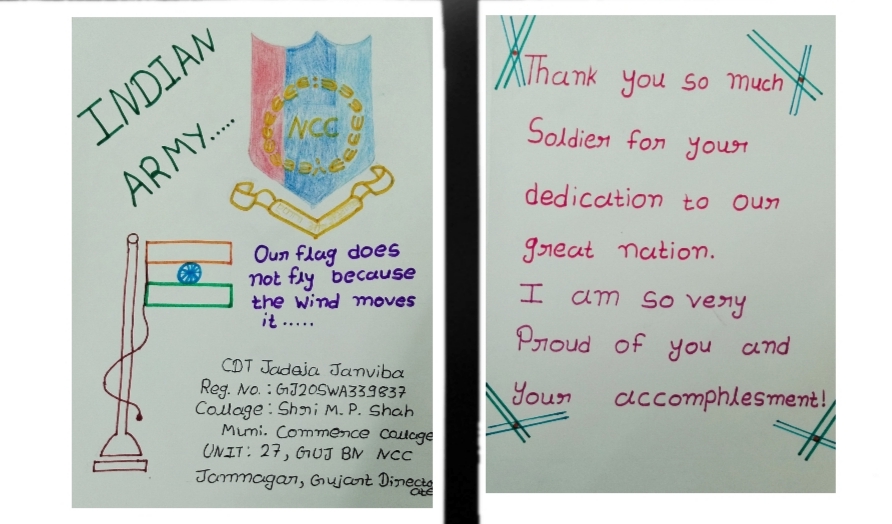 INDIAN
ARMY.....
NCC
Our flag does
not fly because
the wind moves
it .....
CDT Jadeja Janviba
Reg. No. : GJ20SWA339837
Collage : Shri M. P. Shah
Muni. Commerce collage
UNIT : 27, GUJ BN NCC
Jamnagar, Gujart Director
ate
Thank you so much
Soldier for your
dedication to our
great nation.
I am so very
Proud of you and
your accomphlesment!